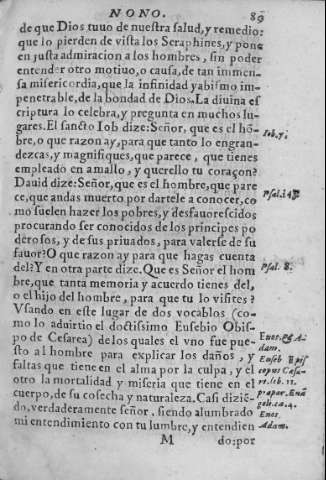 NONO. 89
de que Dios tuuo de nuestra salud, y remedio:
que lo pierden de vista los Seraphines, y pone
en justa admiracion a los hombres, sin poder
entender otro motiuo, o causa, de tan immen
sa misericordia, que la infinidad y abismo im-
penetrable, de la bondad de Dios. La diuina es
criptura lo celebra, y pregunta en muchos lu-
gares. El sancto Iob dize: Señor, que es el hõ-
bre, o que razon ay, para que tanto lo engran-
dezcas, y magnifiques, que parece, que tienes
empleado en amallo, y querello tu coraçon?
Dauid dize: Señor, que es el hombre, que pare
ce, que andas muerto por dartele a conocer, co
mo suelen hazer los pobres, y desfauorescidos
procurando ser conocidos de los principes po
derosos, y de sus priuados, para valerse de su
fauor? O que razon ay para que hagas cuenta
del? Y en otra parte dize. Que es Señor el hom
bre, que tanta memoria y acuerdo tienes del,
o el hijo del hombre, para que tu lo visites?
Vsando en este lugar de dos vocablos (co-
mo lo aduirtio el doctissimo Eusebio Obis-
po de Cesarea) de los quales el vno fue pue-
sto al hombre para explicar los daños, y
faltas que tiene en el alma por la culpa, y el
otro la mortalidad y miseria que tiene en el
cuerpo, de su cosecha y naturaleza. Casi dizié-
do, verdaderamente señor, siendo alumbrado
mi entendimiento con tu lumbre, y entendien
M do: por
Iob, 7.
Psal. 143.
Psal. 8.
Enos. & A-
dam.
Euseb Epis
copus Cæsa-
re. lib. 11.
præpar. Euã
geli. ca. 4.
Enos.
Adam.